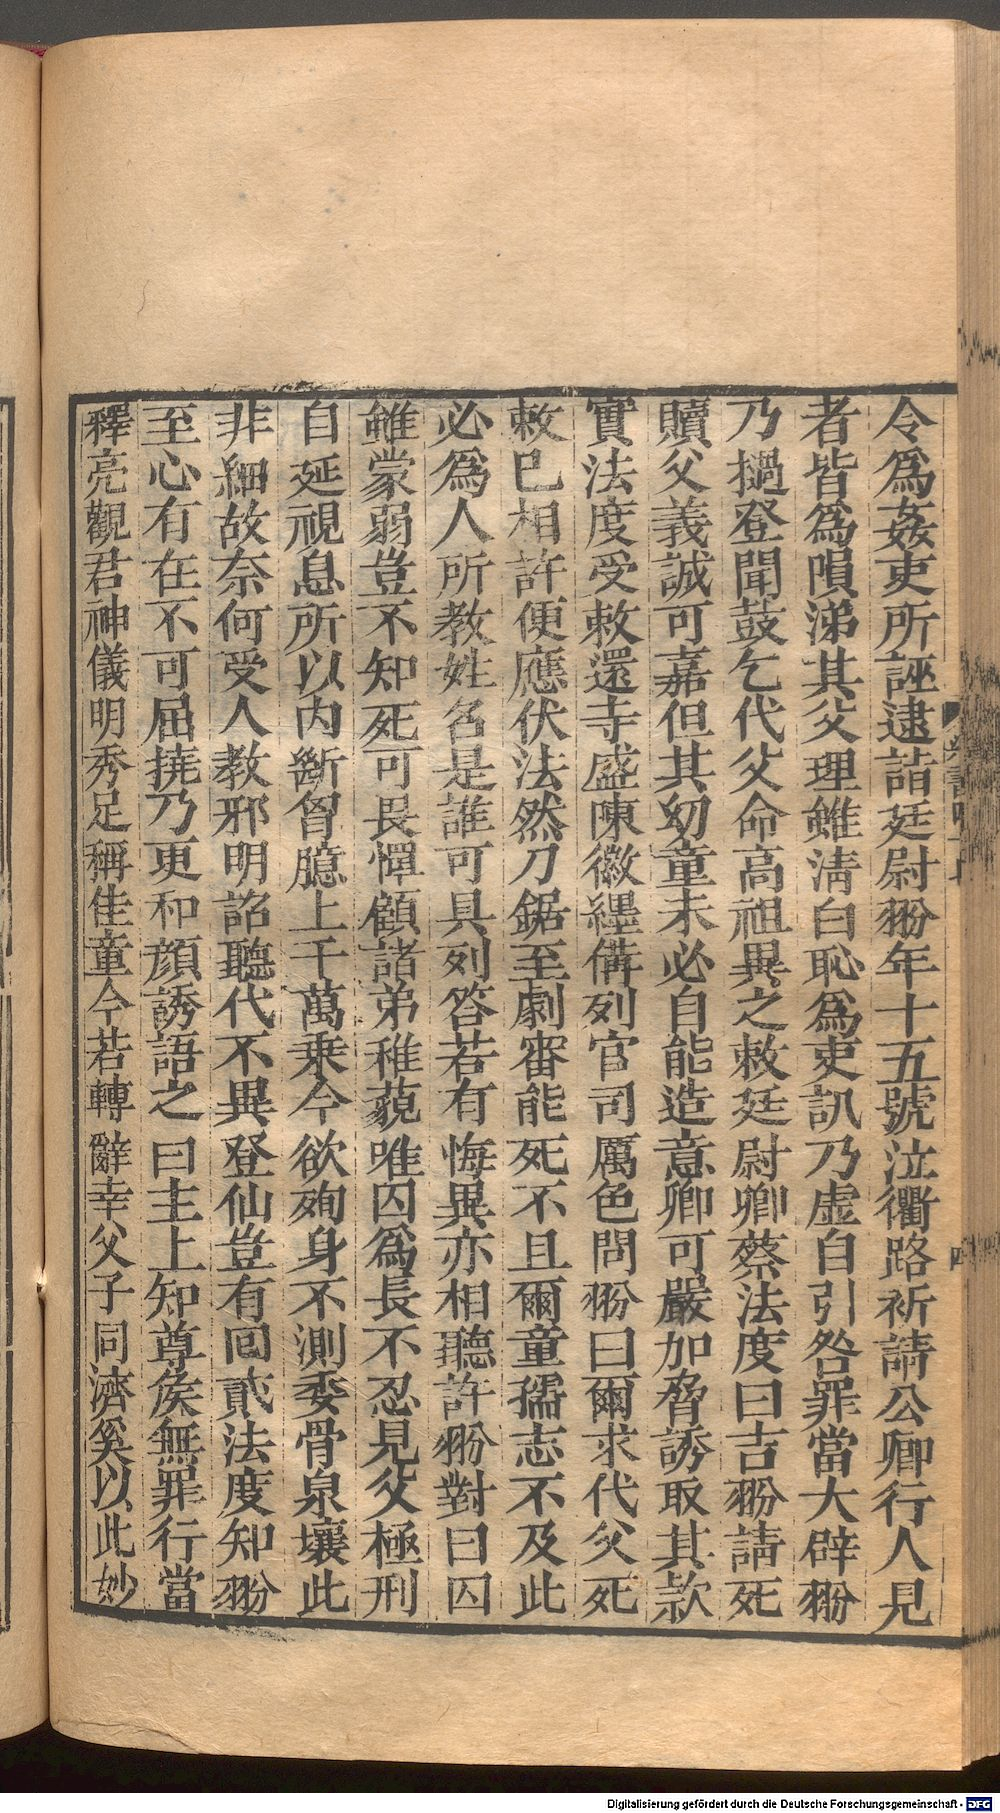 令爲姦吏所誣逮詣廷尉翂年十五號泣衢路祈請公卿行人見
者皆爲隕涕其父理雖淸白恥爲吏訊乃虛自引咎罪當大辟翂
乃撾登聞鼓乞代父命高祖異之敕廷尉卿蔡法度曰吉翂請死
贖父義誠可嘉但其幼童未必自能造意卿可嚴加脅誘取其款
實法度受敕還寺盛陳徽纆備列官司厲色問翂曰爾求代父死
敕已相許便應伏法然刀鋸至劇審能死不且爾童孺志不及此
必爲人所教姓名是誰可具列答若有悔異亦相聽許翂對曰囚
雖蒙弱豈不知死可畏憚顧諸弟稚藐唯囚爲長不忍見父極刑
自延視息所以内斷胷臆上干萬乗今欲殉身不測委骨泉壤此
非細故奈何受人教邪明詔聽代不異登仙豈有回貳法度知翂
至心有在不可屈撓乃更和顏誘語之曰主上知尊侯無罪行當
釋亮觀君神儀明秀足稱佳童今若轉辭幸父子同濟奚以此妙
四
Digitalisierung gefördert durch die Deutsche Forschungsgemeinschaft - DFG